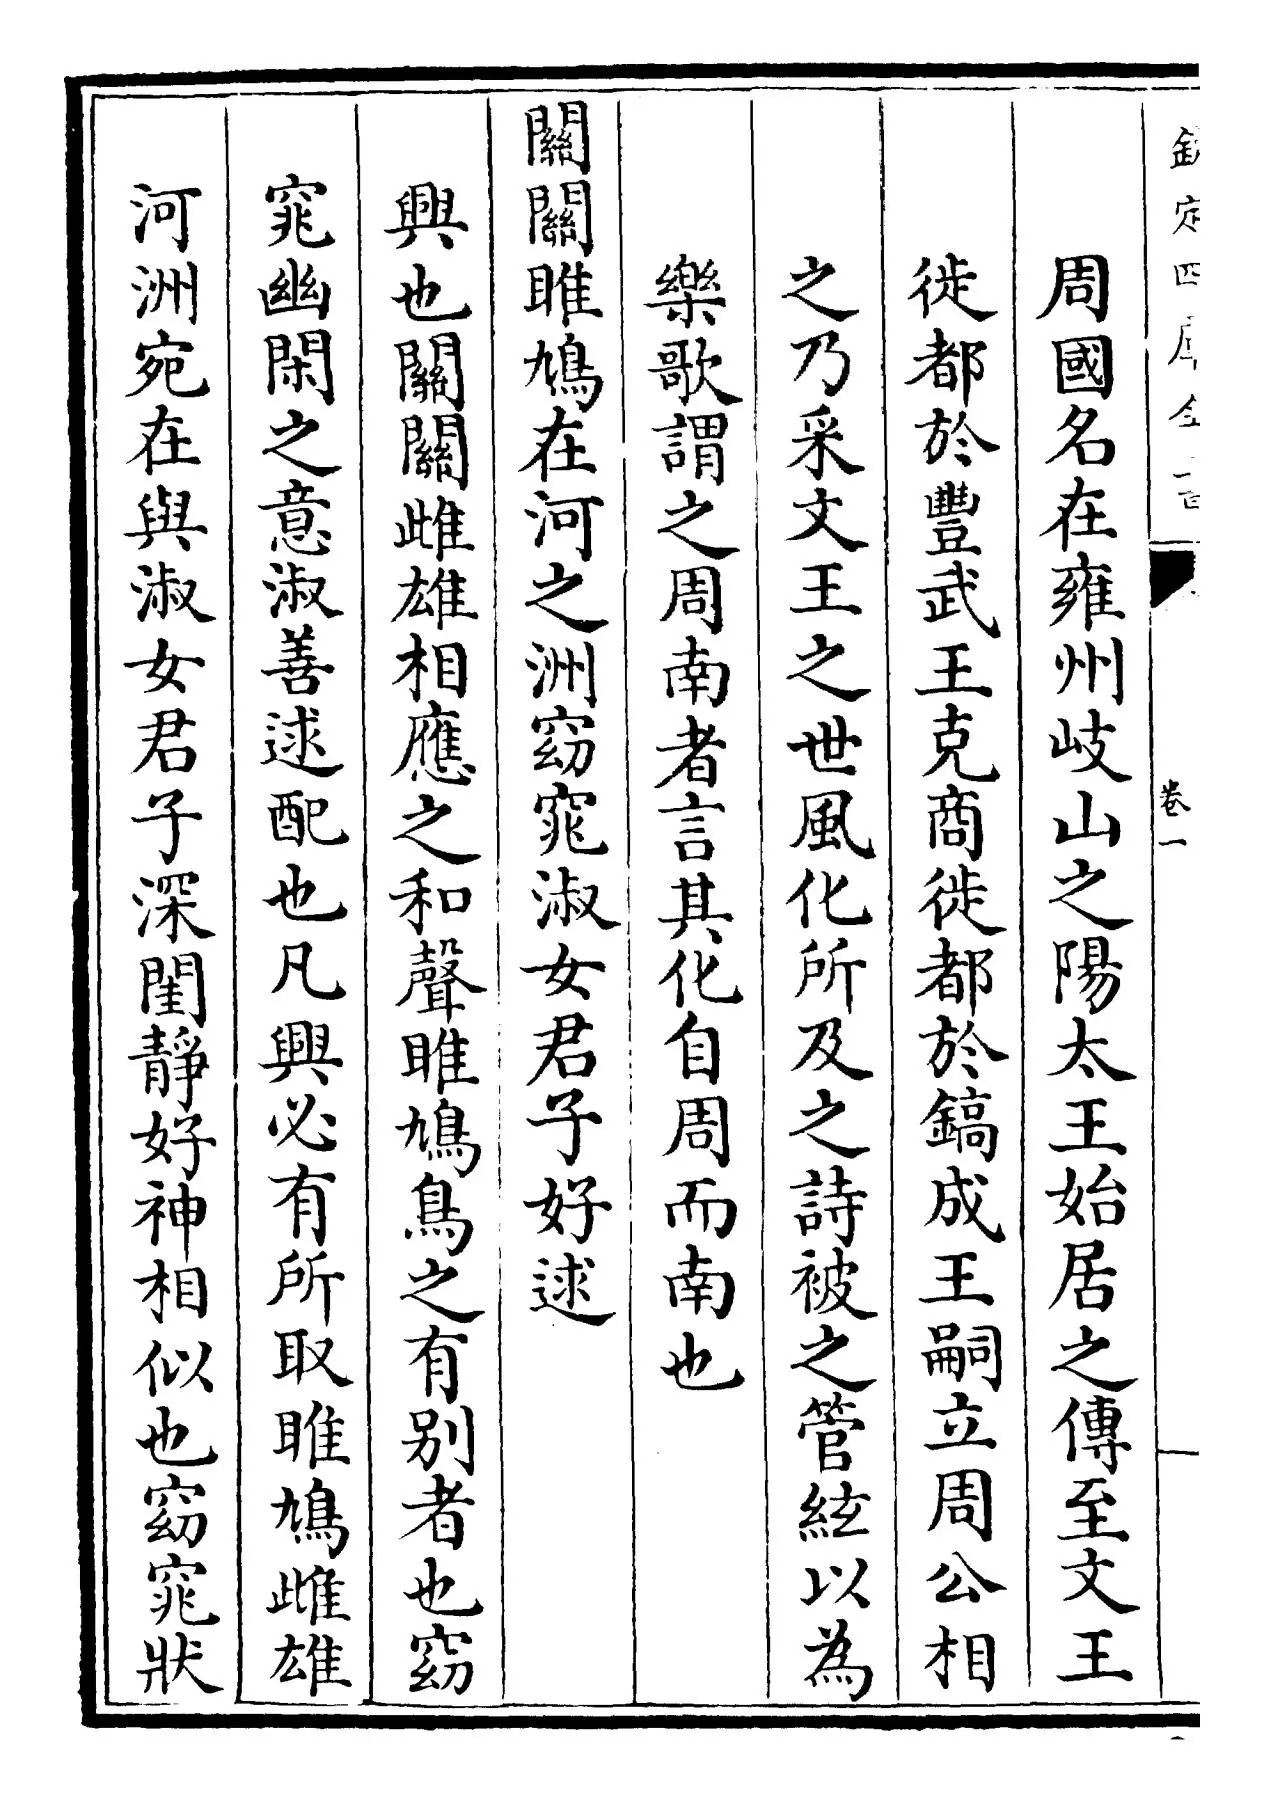 欽定四庫全書
卷一
周國名在雍州岐山之陽太王始居之傳至文王
徙都於豐武王克商徙都於鎬成王嗣立周公相
之乃采文王之世風化所及之詩被之管絃以為
樂歌謂之周南者言其化自周而南也
關關雎鳩在河之洲窈窕淑女君子好逑
興也關關雌雄相應之和聲雎鳩鳥之有别者也窈
窕幽閑之意淑善逑配也凡興必有所取雎鳩雌雄
河洲宛在與淑女君子深閨靜好神相似也窈窕狀